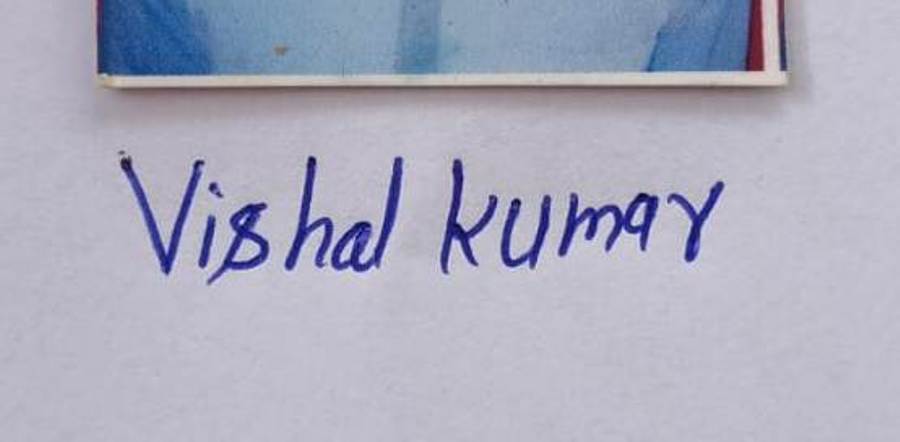 Vishal kumar